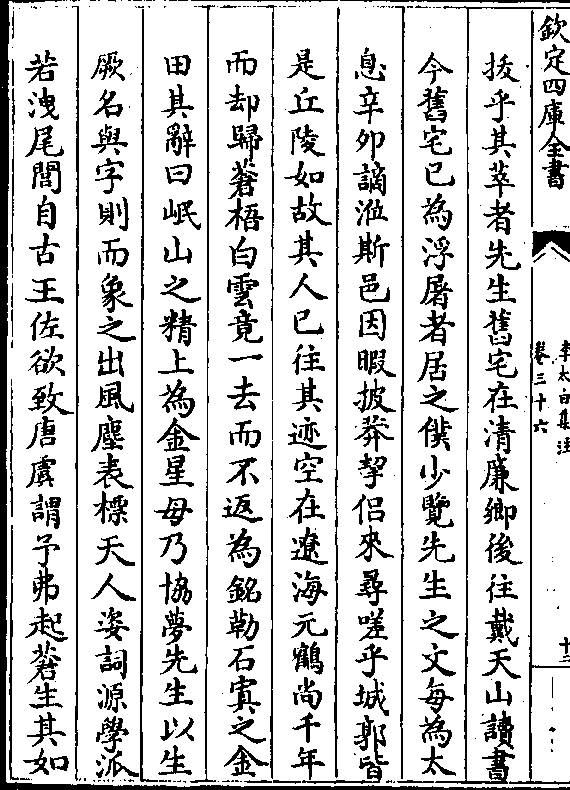 欽定四庫全書
李太白集注
卷三十六
十三
㧞乎其萃者先生舊宅在清廉鄉後往戴天山讀書
今舊宅已為浮屠者居之僕少覽先生之文每為太
息辛卯謫涖斯邑因暇披莽挈侣來尋嗟乎城郭皆
是丘陵如故其人已往其迹空在遼海元鶴尚千年
而却歸蒼梧白雲竟一去而不返為銘勒石寘之金
田其辭曰岷山之精上為金星母乃協夢先生以生
厥名與字則而象之出風塵表標天人姿詞源學派
若洩尾閭自古王佐欲致唐虞謂予弗起蒼生其如